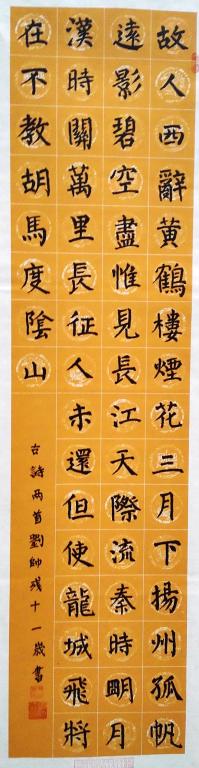 故人西辭黃鶴樓煙花三月下揚州孤帆
遠影碧空盡惟見長江天際流秦時明月
漢時關萬里長征人未還但使龍城飛將
在不教胡馬度陰山
古詩兩首劉帥十一歲書